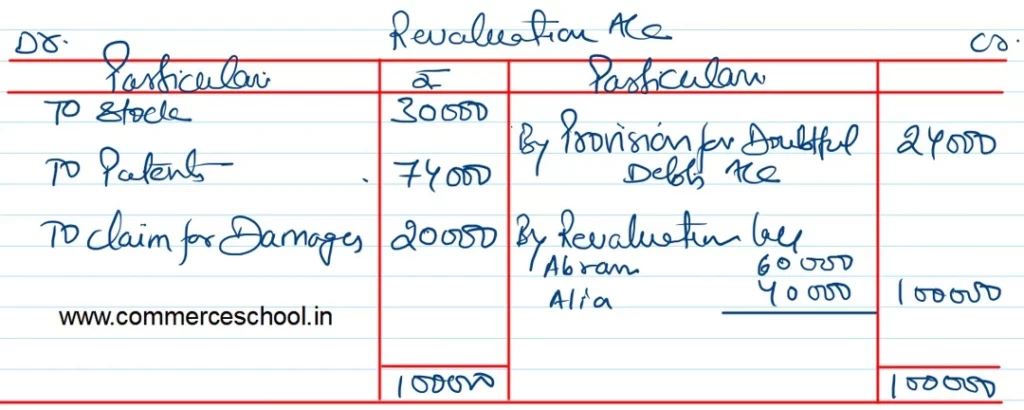 Revaluation A/c
Dr. Cr.
Particulars ₹ Particulars
To Stock 30000
By Provision for Doubtful 24000
Debts A/c
To Patents 74000
To Claim for Damages 20000 By Revaluation loss
Abram 60000
Alia 40000 100000
www.commerceschool.in
100000 100000